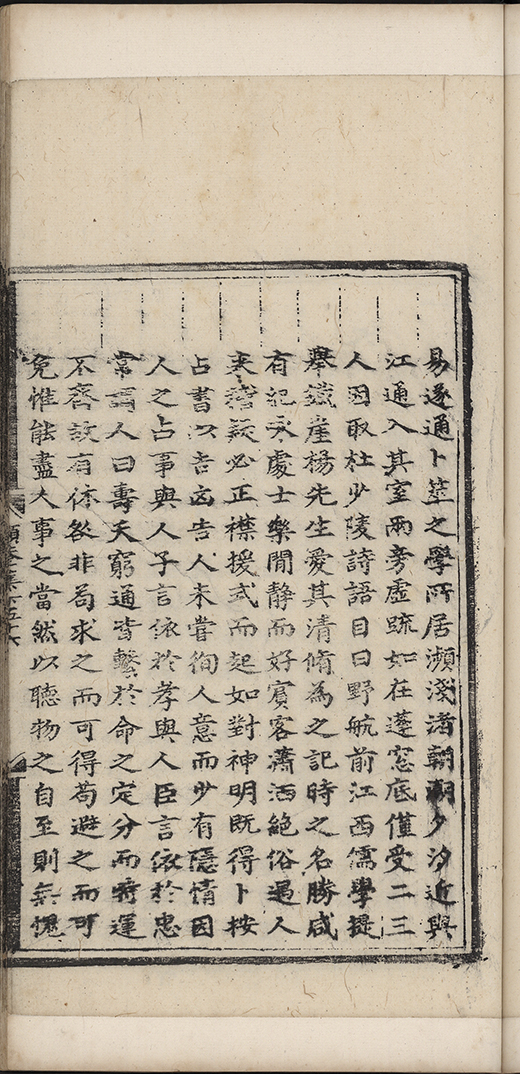 易遂通卜筮之學所居瀕淺渚朝潮夕汐近與
江通入其室兩旁虛疏如在蓬窓底僅受二三
人因取杜少陵詩語目曰野航前江西儒學提
舉鐵崖楊先生愛其清脩為之記時之名勝咸
有記處士樂閒静而好賓客瀟洒絶俗遇人
来稽疑必正襟援式而起如對神明既得卜按
占書以吉凶告人未甞徇人意而少有隱情因
人之占事與人子言依於孝與人臣言依於忠
常謂人曰壽夭窮通皆繫於命之定分而時運
不齊故有休咎非苟求之而可得苟避之而可
免惟能盡人事之當然以聴物之自至則無愧